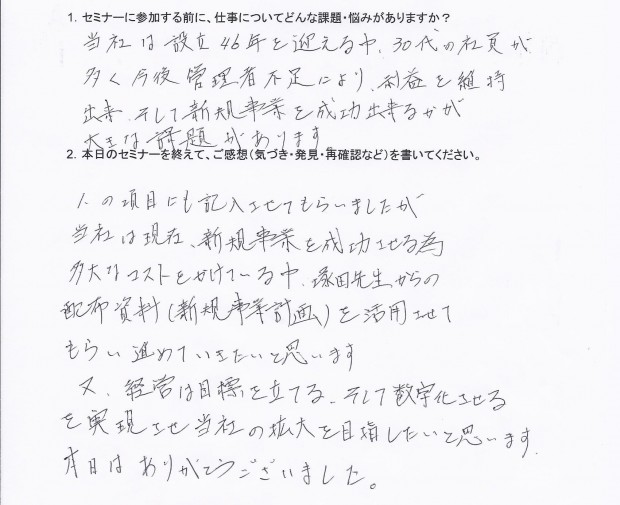 1. セミナーに参加する前に、仕事についてどんな課題・悩みがありますか？
当社は設立46年を迎える中、30代の社員が
多く今後管理者不足により、利益を維持
出来、そして新規事業を成功出来るかが
大きな課題があります
2. 本日のセミナーを終えて、ご感想（気づき・発見・再確認など）を書いてください。
1.の項目にも記入させてもらいましたが
当社は現在、新規事業を成功させる為
多大なコストをかけている中、塚田先生からの
配布資料（新規事業計画）を活用させて
もらい進めていきたいと思います
又、経営は目標を立てる、そして数字化させる
を実現させ当社の拡大を目指したいと思います。
本日はありがとうございました。